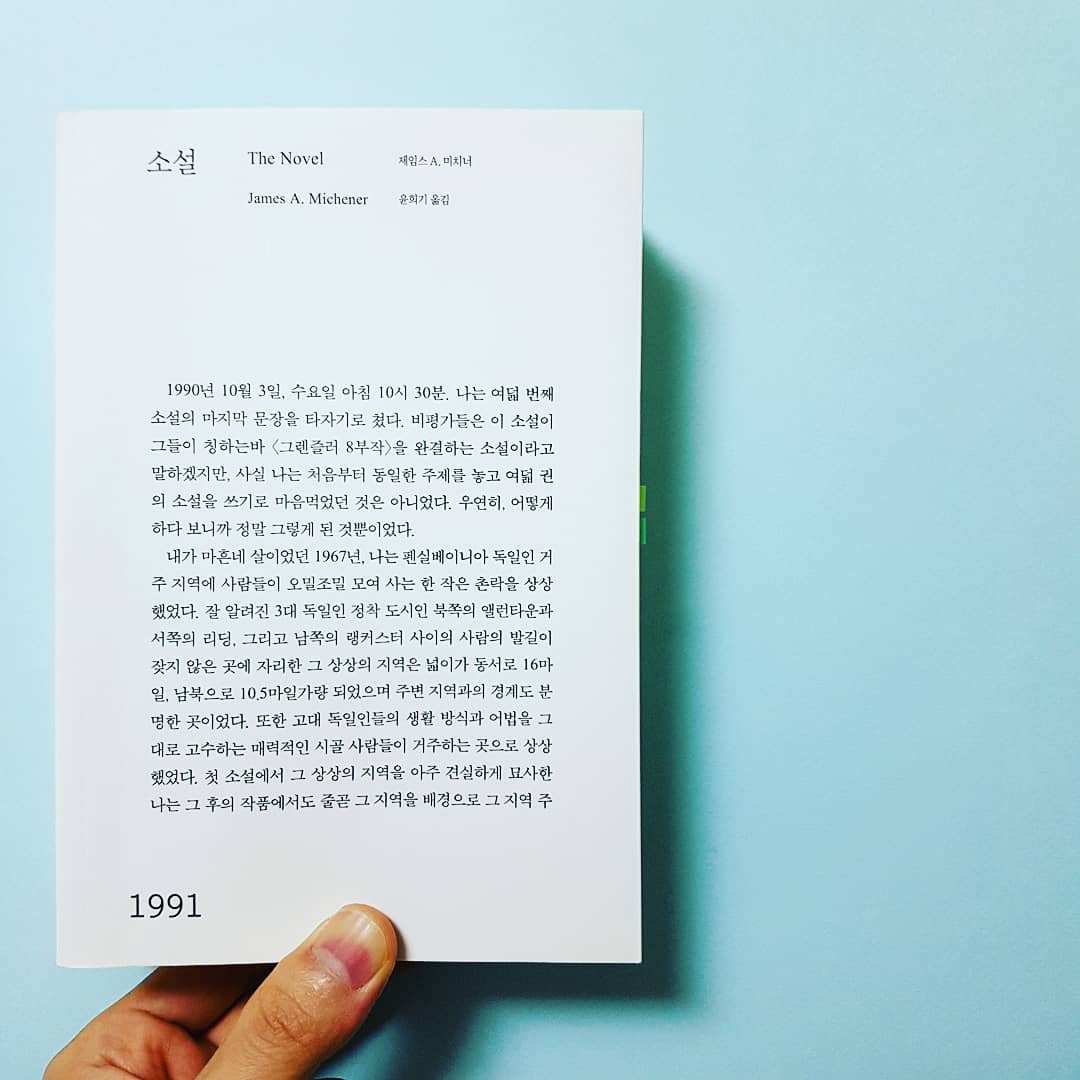 소설 The Novel 제임스 A. 미치너
James A. Michener 윤희기 옮김
1990년 10월 3일, 수요일 아침 10시 30분. 나는 여덟 번째
소설의 마지막 문장을 타자기로 쳤다. 비평가들은 이 소설이
그들이 칭하는바 〈그렌즐러 8부작〉을 완결하는 소설이라고
말하겠지만, 사실 나는 처음부터 동일한 주제를 놓고 여덟 권
의 소설을 쓰기로 마음먹었던 것은 아니었다. 우연히, 어떻게
하다 보니까 정말 그렇게 된 것뿐이었다.
내가 마흔네 살이었던 1967년, 나는 펜실베이니아 독일인 거
주 지역에 사람들이 오밀조밀 모여 사는 한 작은 촌락을 상상
했었다. 잘 알려진 3대 독일인 정착 도시인 북쪽의 앨런타운과
서쪽의 리딩, 그리고 남쪽의 랭커스터 사이의 사람의 발길이
잦지 않은 곳에 자리한 그 상상의 지역은 넓이가 동서로 16마
일, 남북으로 10.5마일가량 되었으며 주변 지역과의 경계도 분
명한 곳이었다. 또한 고대 독일인들의 생활 방식과 어법을 그
대로 고수하는 매력적인 시골 사람들이 거주하는 곳으로 상상
했었다. 첫 소설에서 그 상상의 지역을 아주 견실하게 묘사한
나는 그 후의 작품에서도 줄곧 그 지역을 배경으로 그 지역 주
1991